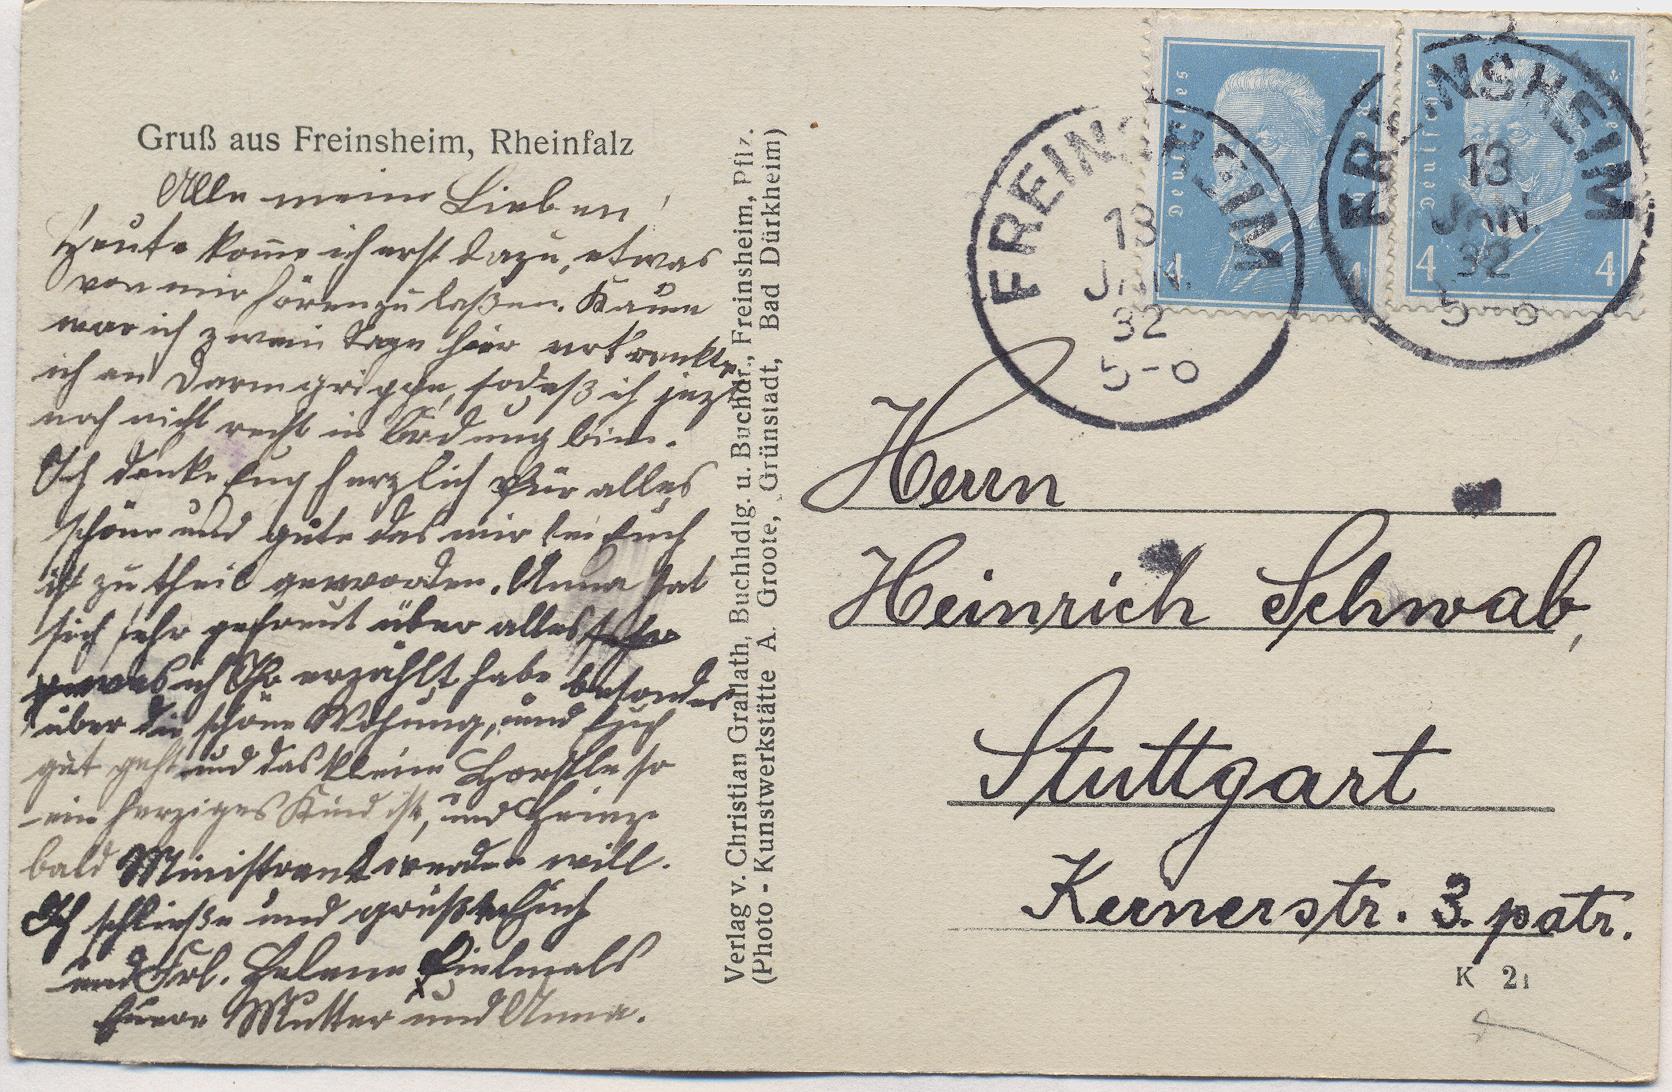 Gruß aus Freinsheim, Rheinfalz
Alle meine Lieben!
Heute kome ich erst dazu, etwas
von mir hören zu laßen. Kaum
war ich zwein Tage hier erkrankte
ich an Darmgrippe, sodaß ich jezt
noch nicht recht in Ordnung bin.
Ich danke Eug herzlich für alles
schöne und gute das mir bei Euch
ist zu theil geworden. Anna hat
sich sehr gefreut über alles
was ich Ihr erzählt habe besonders
über die schöne Wohung, und Euch
gut geht und das kleine Horstle so
ein herziges Kind ist, und Heinz
bald Ministrant werden will.
Ich schließe und grüßte Euch
und Frl. Helene Fielmals
Euere Mutter und Anna.
Verlag v. Christian Grallath, Buchhdlg. u. Buchdr., Freinsheim, Pflz.
(Photo - Kunstwerkstätte A. Groote, Grünstadt, Bad Dürkheim)
Deutsches Reich
4 4
Deutsches Reich
4 4
FREINSHEIM
13
JAN.
32
5-6
FREINSHEIM
13
JAN.
32
5-6
Herrn
Heinrich Schwab,
Stuttgart
Kernerstr. 3. patr.
K 21